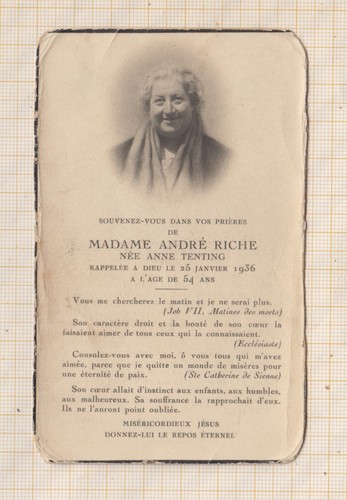 SOUVENEZ-VOUS DANS VOS PRIÈRES
DE
MADAME ANDRÉ RICHE
NÉE ANNE TENTING
RAPPELÉE A DIEU LE 25 JANVIER 1936
A L'AGE DE 54 ANS
Vous me chercherez le matin et je ne serai plus.
(Job VII. Matines des morts)
Son caractère droit et la bonté de son cœur la
faisaient aimer de tous ceux qui la connaissaient.
(Ecclésiaste)
Consolez-vous avec moi, ô vous tous qui m'avez
aimée, parce que je quitte un monde de misères pour
une éternité de paix.
(Ste Catherine de Sienne)
Son cœur allait d'instinct aux enfants, aux humbles,
aux malheureux. Sa souffrance la rapprochait d'eux.
Ils ne l'auront point oubliée.
MISÉRICORDIEUX JÉSUS
DONNEZ-LUI LE REPOS ÉTERNEL